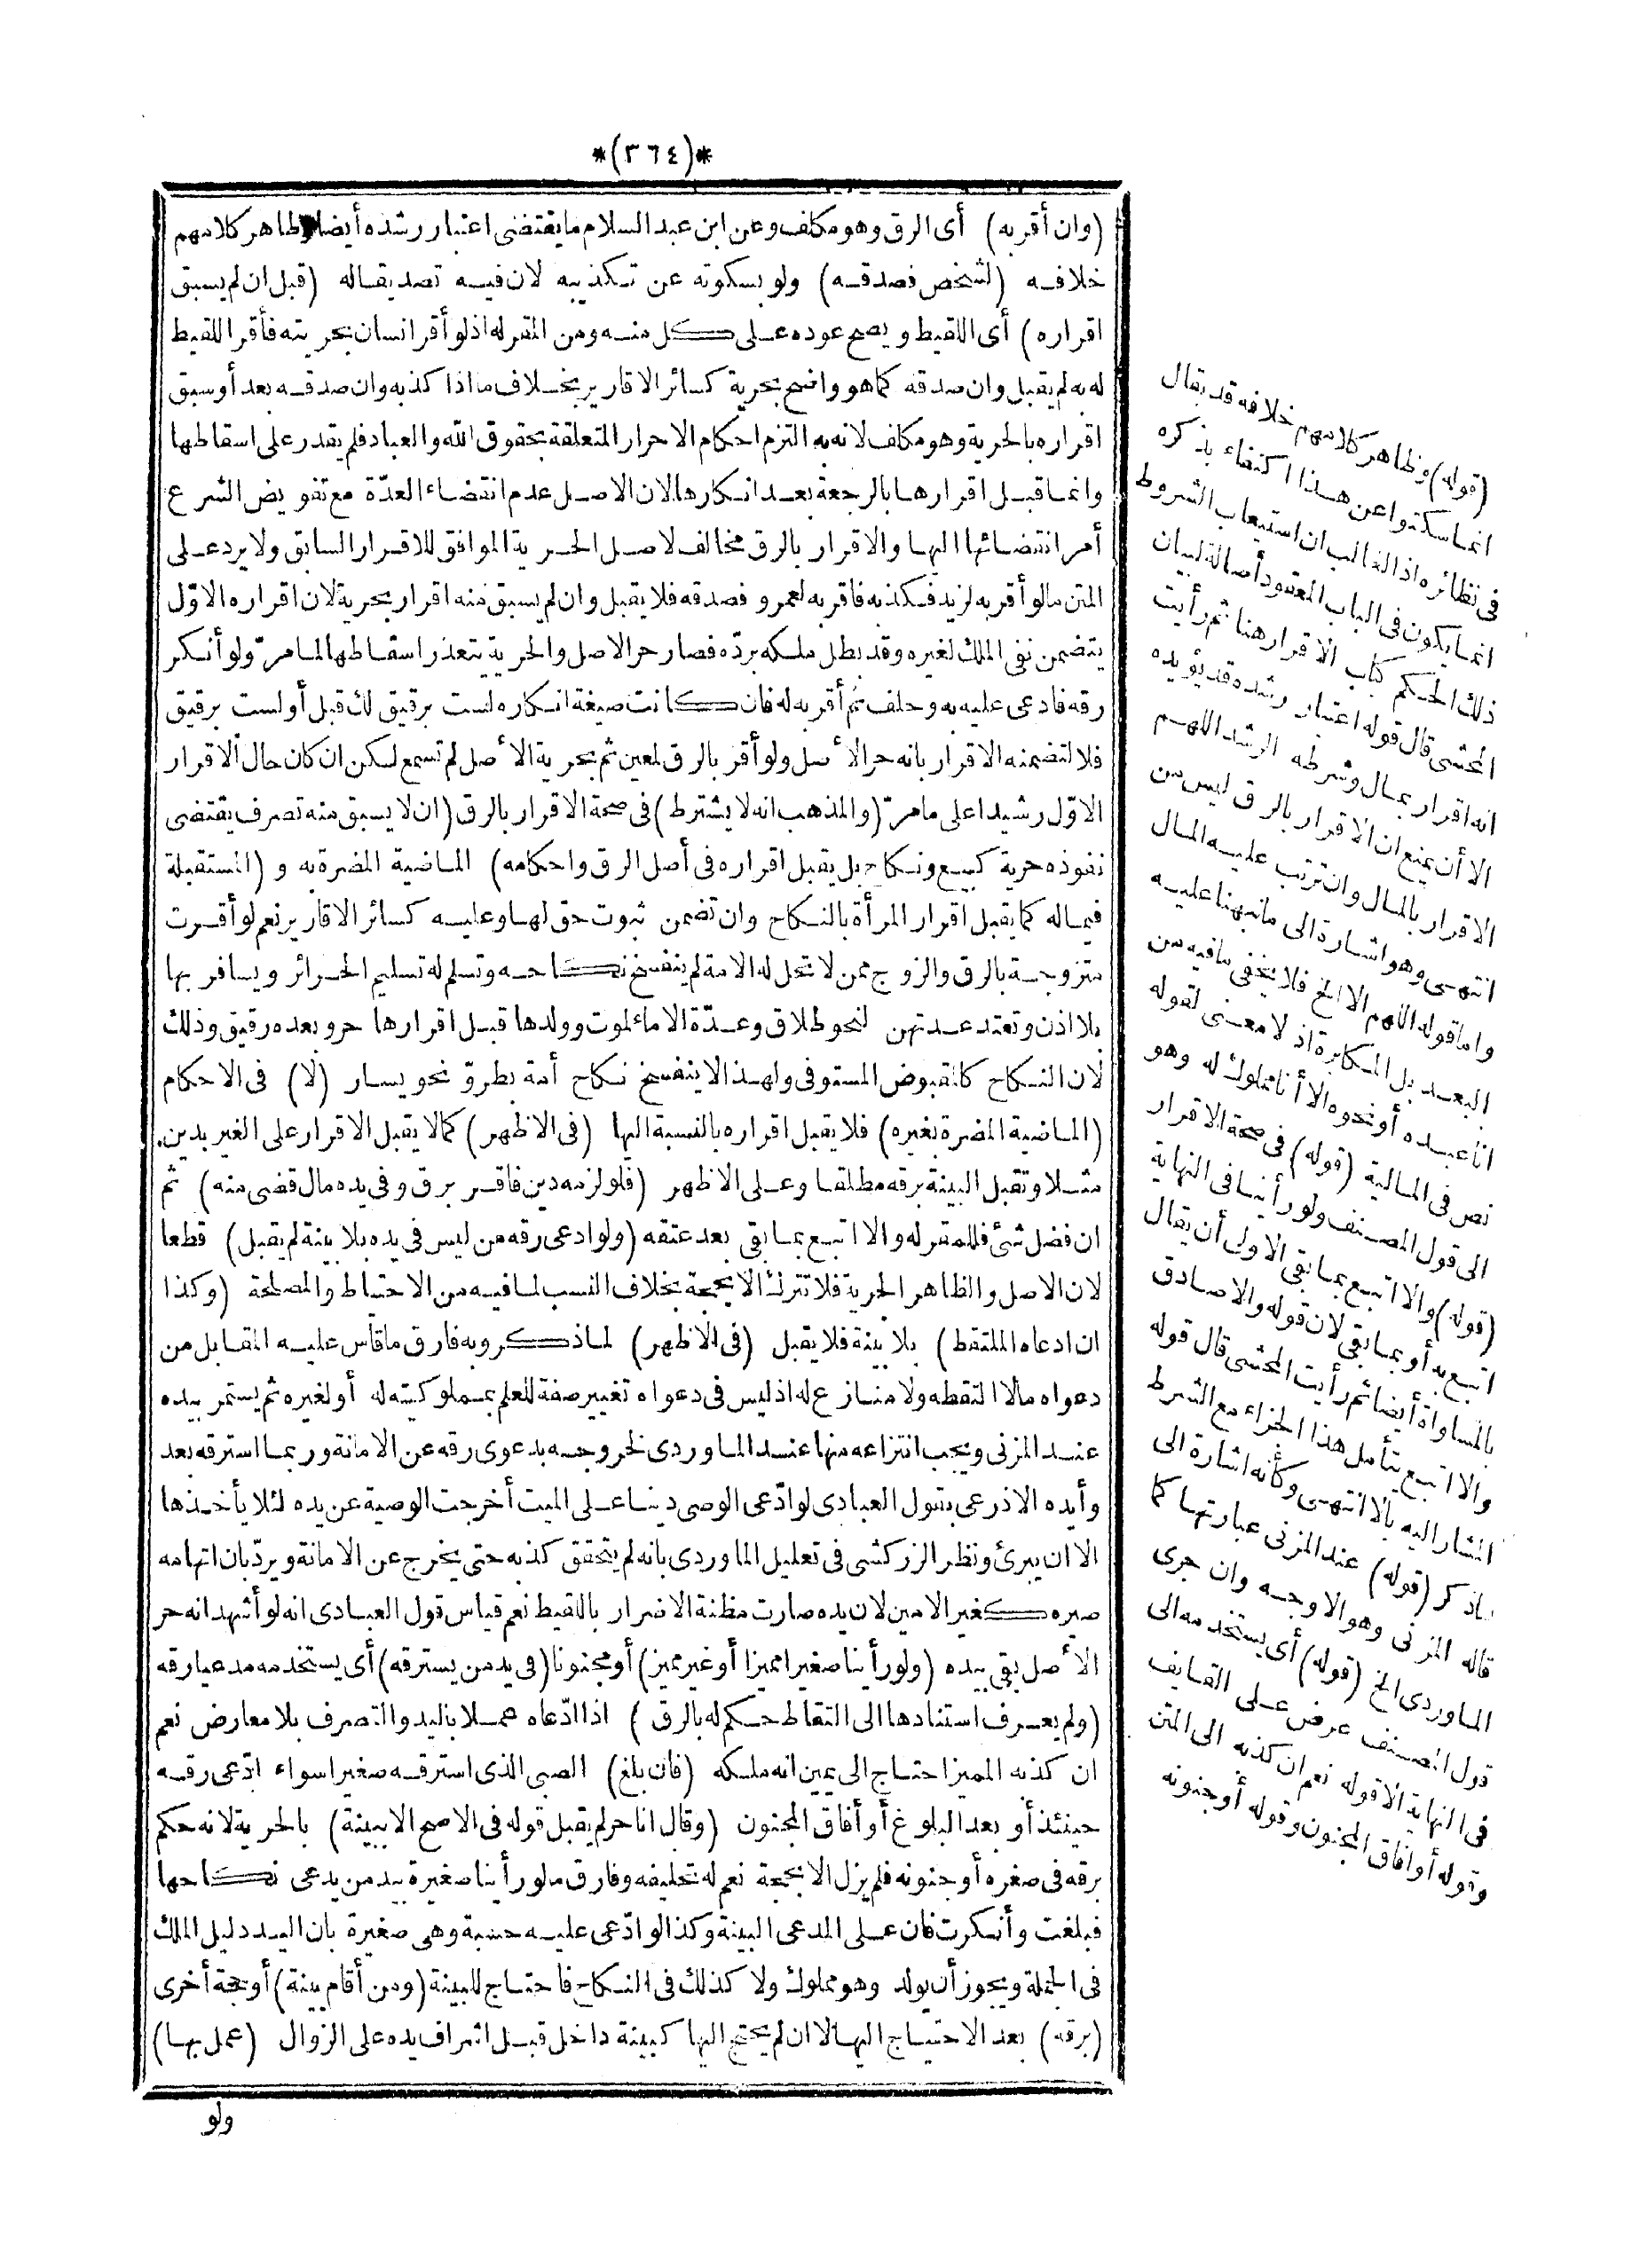 *(٣٦٤)*
(وان أقربه) أى الرق وهو مكلف وعن ابن عبد السلام ما يقتضى اعتبار رشده أيضا وظاهر كلامهم
خلافه (لشخص فصدقه) ولو بسكوته عن تكذيبه لان فيه تصديقا له (قبل ان لم يسبق
اقراره) أى اللقيط ويصح عوده على كل منه ومن المقر له اذ لو أقر انسان بحريته فأقر اللقيط
له به لم يقبل وان صدقه كما هو واضح بحرية كسائر الاقارير بخلاف ما اذا كذبه وان صدقه بعد أو سبق
اقراره بالحرية وهو مكلف لانه به التزم احكام الاحرار المتعلقة بحقوق الله والعباد فلم يقدر على اسقاطها
وانما قبل اقرارها بالرجعة بعد انكارها لان الاصل عدم انقضاء العدّة مع تفويض الشرع
أمر انقضائها اليها والاقرار بالرق مخالف لاصل الحرية الموافق للاقرار السابق ولا يرد على
المتن ما لو أقر به لزيد فكذبه فأقر به لعمرو فصدقه فلا يقبل وان لم يسبق منه اقرار بحرية لان اقراره الاوّل
يتضمن نفى الملك لغيره وقد بطل ملكه بردّه فصار حر الاصل والحرية يتعذر اسقاطها لما مرّ ولو أنكر
رقه فادعى عليه به وحلف ثم أقر به له فان كانت صيغة انكاره لست برقيق لك قبل أو لست برقيق
فلا لتضمنه الاقرار بانه حر الأصل ولو أقر بالرق لمعين ثم بحرية الأصل لم تسمع لكن ان كان حال الاقرار
الاوّل رشيدا على ما مرّ (والمذهب انه لا يشترط) فى صحة الاقرار بالرق (ان لا يسبق منه تصرف يقتضى
نفوذه حرية كبيع ونكاح بل يقبل اقراره فى أصل الرق واحكامه) الماضية المضرة به و (المستقبلة
فيما له كما يقبل اقرار المرأة بالنكاح وان تضمن ثبوت حق لها وعليه كسائر الاقارير نعم لو أقرت
متزوجة بالرق والزوج ممن لا تحل له الامة لم ينفسخ نكاحه وتسلم له تسليم الحرائر ويسافر بها
بلا اذن وتعتد عدتهن لنحو طلاق وعدّة الاماء لموت وولدها قبل اقرارها حر وبعده رقيق وذلك
لان النكاح كالمقبوض المستوفى ولهذا لا ينفسخ نكاح أمة بطروّ نحو يسار (لا) فى الاحكام
(الماضية المضرة بغيره) فلا يقبل اقراره بالنسبة اليها (فى الاظهر) كما لا يقبل الاقرار على الغير بدين
مثلا وتقبل البينة برقه مطلقا وعلى الاظهر (فلو لزمه دين فاقر برق وفى يده مال قضى منه) ثم
ان فضل شئ فللمقر له والا اتبع بما بقى بعد عتقه (ولو ادعى رقه من ليس فى يده بلا بينة لم يقبل) قطعا
لان الاصل والظاهر الحرية فلا تترك الا بحجة بخلاف النسب لما فيه من الاحتياط والمصلحة (وكذا
ان ادعاه الملتقط) بلا بينة فلا يقبل (فى الاظهر) لما ذكر وبه فارق ما قاس عليه المقابل من
دعواه مالا التقطه ولا منازع له اذ ليس فى دعواه تغيير صفة للعلم بمملوكيته له أو لغيره ثم يستمر بيده
عند المزنى ويجب انتزاعه منها عند الماوردى لخروجه بدعوى رقه عن الامانة وربما استرقه بعد
وأيده الاذرعى بقول العبادى لو ادّعى الوصى دينا على الميت أخرجت الوصية عن يده لئلا يأخذها
الا ان يبرئ ونظر الزركشى فى تعليل الماوردى بانه لم يتحقق كذبه حتى يخرج عن الامانة ويردّ بان اتهامه
صيره كغير الامين لان يده صارت مظنة الاضرار باللقيط نعم قياس قول العبادى انه لو أشهد انه حر
الأصل بقى بيده (ولو رأينا صغيرا مميزا أو غير مميز) أو مجنونا (فى يد من يسترقه) أى يستخدمه مدعيا رقه
(ولم يعرف استنادها الى التقاط حكم له بالرق) اذا ادّعاه عملا باليد والتصرف بلا معارض نعم
ان كذبه المميز احتاج الى يمين انه ملكه (فان بلغ) الصبى الذى استرقه صغيرا سواء ادّعى رقه
حينئذ أو بعد البلوغ أو أفاق المجنون (وقال انا حر لم يقبل قوله فى الاصح الا ببينة) بالحرية لانه حكم
برقه فى صغره أو جنونه فلم يزل الا بحجة نعم له تحليفه وفارق ما لو رأينا صغيرة بيد من يدعى نكاحها
فبلغت وأنكرت فان على المدعى البينة وكذا لو ادّعى عليه حسبة وهى صغيرة بان اليد دليل الملك
فى الجملة ويجوز أن يولد وهو مملوك ولا كذلك فى النكاح فاحتاج للبينة (ومن أقام بينة) أو حجة أخرى
(برقه) بعد الاحتياج اليها لا ان لم يحتج اليها كبينة داخل قبل اشراف يده على الزوال (عمل بها)
ولو
(قوله) وظاهر كلامهم خلافه قد يقال
انما سكتوا عن هذا اكتفاء بذكره
فى نظائره اذ الغالب ان استيعاب الشروط
انما يكون فى الباب المعقود أصالة لبيان
ذلك الحكم كتاب الاقرار هنا ثم رأيت
المحشى قال قوله اعتبار رشده قد يؤيده
انه اقرار بمال وشرطه الرشد اللهم
الا أن يمنع ان الاقرار بالرق ليس من
الاقرار بالمال وان ترتب عليه المال
انتهى وهو اشارة الى ما نبهنا عليه
واما قوله اللهم الا الخ فلا يخفى ما فيه من
البعد بل المكابرة اذ لا معنى لقوله
انا عبده أو نحوه الا أنا مملوك له وهو
نص فى المالية (قوله) فى صحة الاقرار
الى قول المصنف ولو رأينا فى النهاية
(قوله) والا اتبع بما بقى الاولى أن يقال
اتبع به أو بما بقى لان قوله والا صادق
بالمساواة أيضا ثم رأيت المحشى قال قوله
والا اتبع يتأمل هذا الجزاء مع الشرط
المشار اليه بالا انتهى وكأنه اشارة الى
ما ذكر (قوله) عند المزنى عبارتها كما
قاله المزنى وهو الاوجه وان جرى
الماوردى الخ (قوله) أى يستخدمه الى
قول المصنف عرض على القايف
فى النهاية الا قوله نعم ان كذبه الى المتن
وقوله أو افاق المجنون وقوله أو جنونه